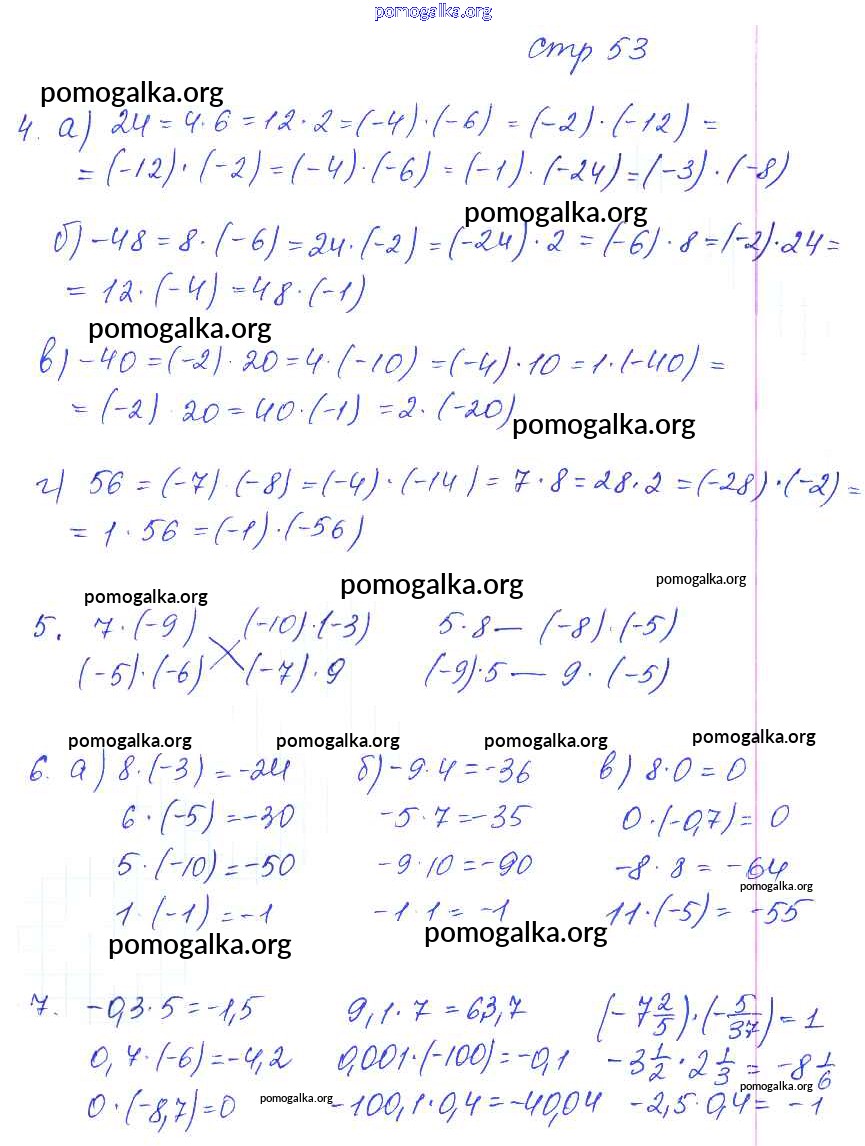 pomogalka.org
стр 53
pomogalka.org
4. а) 24 = 4·6 = 12·2 = (-4)·(-6) = (-2)·(-12) =
= (-12)·(-2) = (-4)·(-6) = (-1)·(-24) = (-3)·(-8)
pomogalka.org
б) -48 = 8·(-6) = 24·(-2) = (-24)·2 = (-6)·8 = (-2)·24 =
= 12·(-4) = 48·(-1)
pomogalka.org
в) -40 = (-2)·20 = 4·(-10) = (-4)·10 = 1·(-40) =
= (-2)·20 = 40·(-1) = 2·(-20)
pomogalka.org
г) 56 = (-7)·(-8) = (-4)·(-14) = 7·8 = 28·2 = (-28)·(-2) =
= 1·56 = (-1)·(-56)
pomogalka.org pomogalka.org pomogalka.org
5. 7·(-9) (-10)·(-3) 5·8 — (-8)·(-5)
(-5)·(-6) (-7)·9 (-9)·5 — 9·(-5)
pomogalka.org pomogalka.org pomogalka.org pomogalka.org
6. а) 8·(-3) = -24 б) -9·4 = -36 в) 8·0 = 0
6·(-5) = -30 -5·7 = -35 0·(-0,7) = 0
5·(-10) = -50 -9·10 = -90 -8·8 = -64
pomogalka.org
1·(-1) = -1 -1·1 = -1 11·(-5) = -55
pomogalka.org pomogalka.org
7. -0,3·5 = -1,5 9,1·7 = 63,7 (-7 2/5)·(-5/37) = 1
0,7·(-6) = -4,2 0,001·(-100) = -0,1 -3 1/2·2 1/3 = -8 1/6
pomogalka.org pomogalka.org
0·(-8,7) = 0 -100,1·0,4 = -40,04 -2,5·0,4 = -1